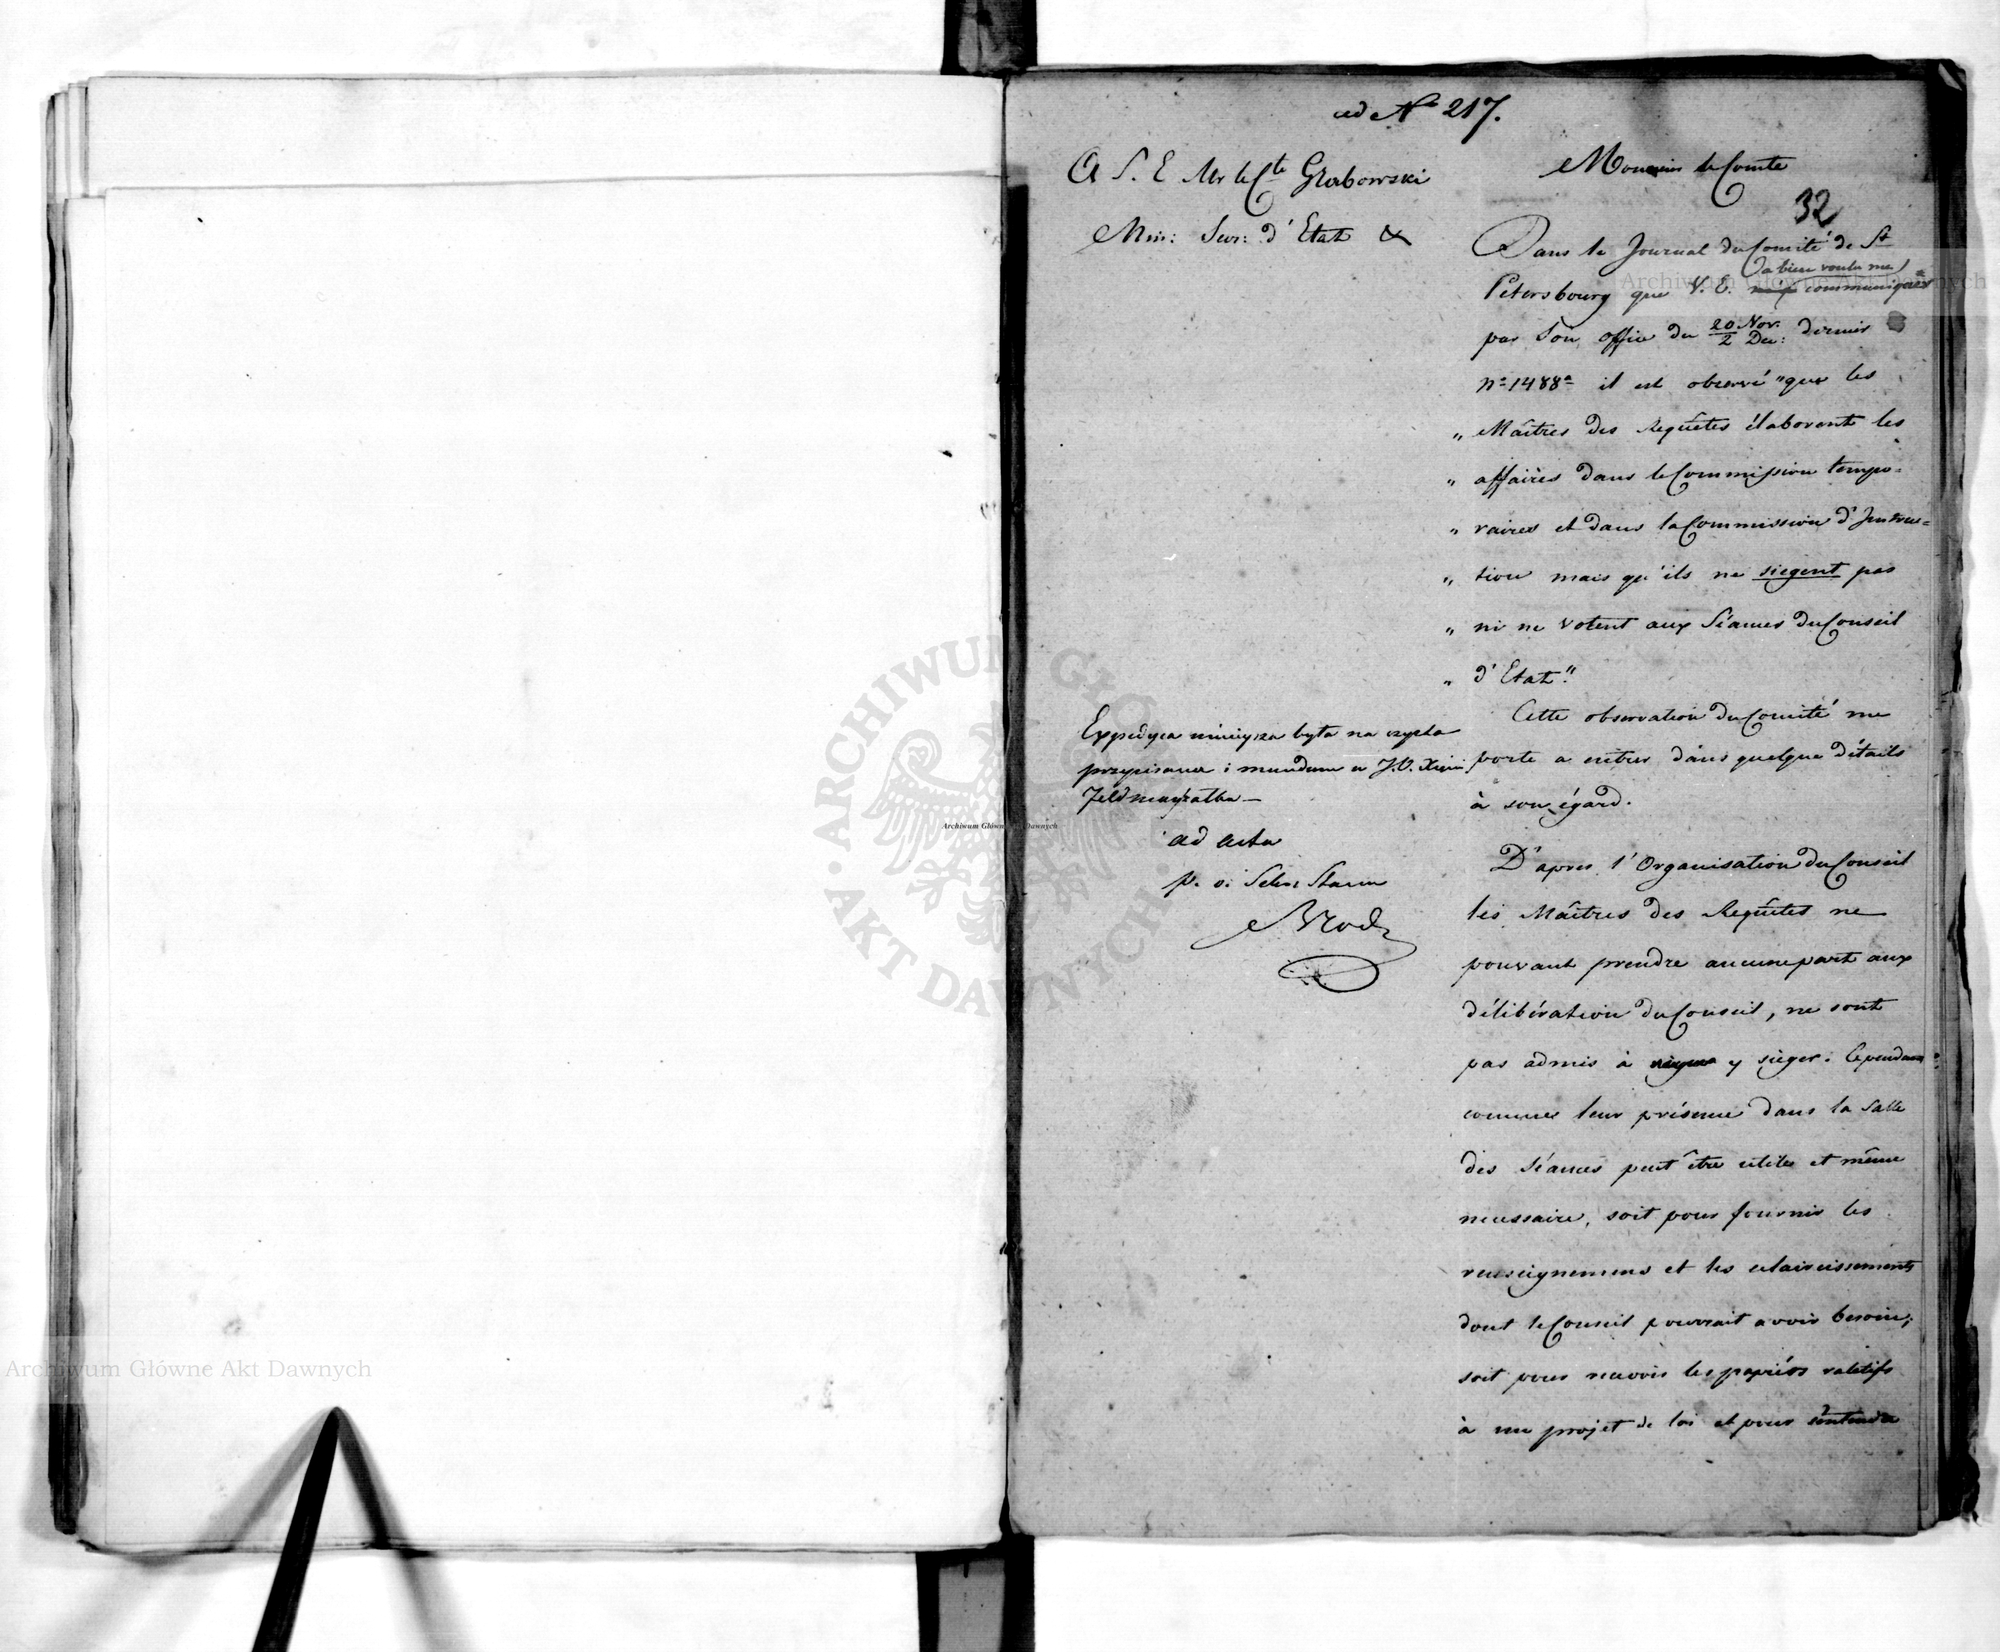 ad No 217.
A S. E Mr le Cte Grabowski
Min: Secr: d'Etat &
Monsieur le Comte
32
Dans le Journal du Comité de St
a bien voulu me
Petersbourg que V. E. communiquer
par Son office du 20 Nov. / 2 Dec: dernier
No 1488a il est observé "que les
" Maîtres des Requêtes élaborent les
" affaires dans le Commission tempo=
" raires et dans la Commission d'Instruc=
" tion mais qu'ils ne siegent pas
" ni ne votent aux Séances du Conseil
" d'Etat."
Cette observation du Comité me
porte a entrer dans quelque détails
à son égard.
D'apres l'Organisation du Conseil
les Maîtres des Requêtes ne
pouvant prendre aucune part aux
délibération du Conseil, ne sont
pas admis à y siéger. Cependant
comme leur présence dans la Salle
des Séances peut être utile et même
necessaire, soit pour fournir les
renseignemens et les eclaircissements
dont le Conseil pourrait avoir besoin;
soit pour recevoir les papiérs relatifs
à un projet de loi et pour entendre
Expedycya niniejsza była na czysto
przepisana i mundum u J.O. Xięcia
Feldmarszałka —
ad acta
p. o. Sekr: Stanu
Archiwum Główne Akt Dawnych
Archiwum Główne Akt Dawnych
Archiwum Główne Akt Dawnych
ARCHIWUM GŁÓWNE AKT DAWNYCH